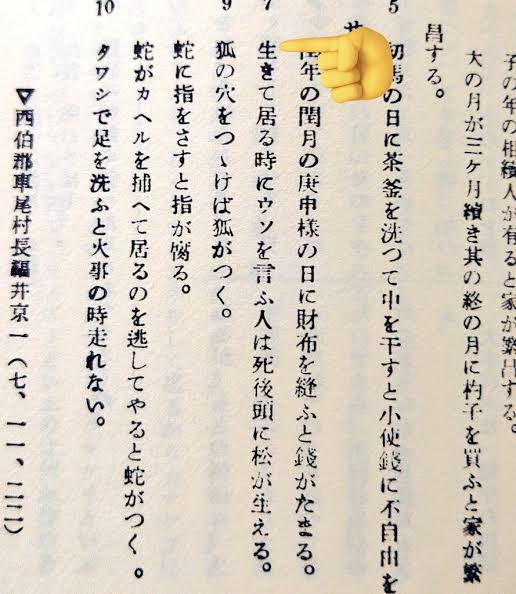 子の年の相續人が有ると家が繁昌する。
大の月が三ヶ月續き其の終の月に杓子を買ふと家が繁
昌する。
5 初馬の日に茶釜を洗つて中を干すと小使錢に不自由を
閏年の閏月の庚申様の日に財布を縫ふと錢がたまる。
7 生きて居る時にウソを言ふ人は死後頭に松が生える。
9 狐の穴をつつけば狐がつく。
蛇に指をさすと指が腐る。
蛇がカヘルを捕へて居るのを逃してやると蛇がつく。
10 タワシで足を洗ふと火事の時走れない。
▽西伯郡車尾村長福井京一（七、一一、二二）